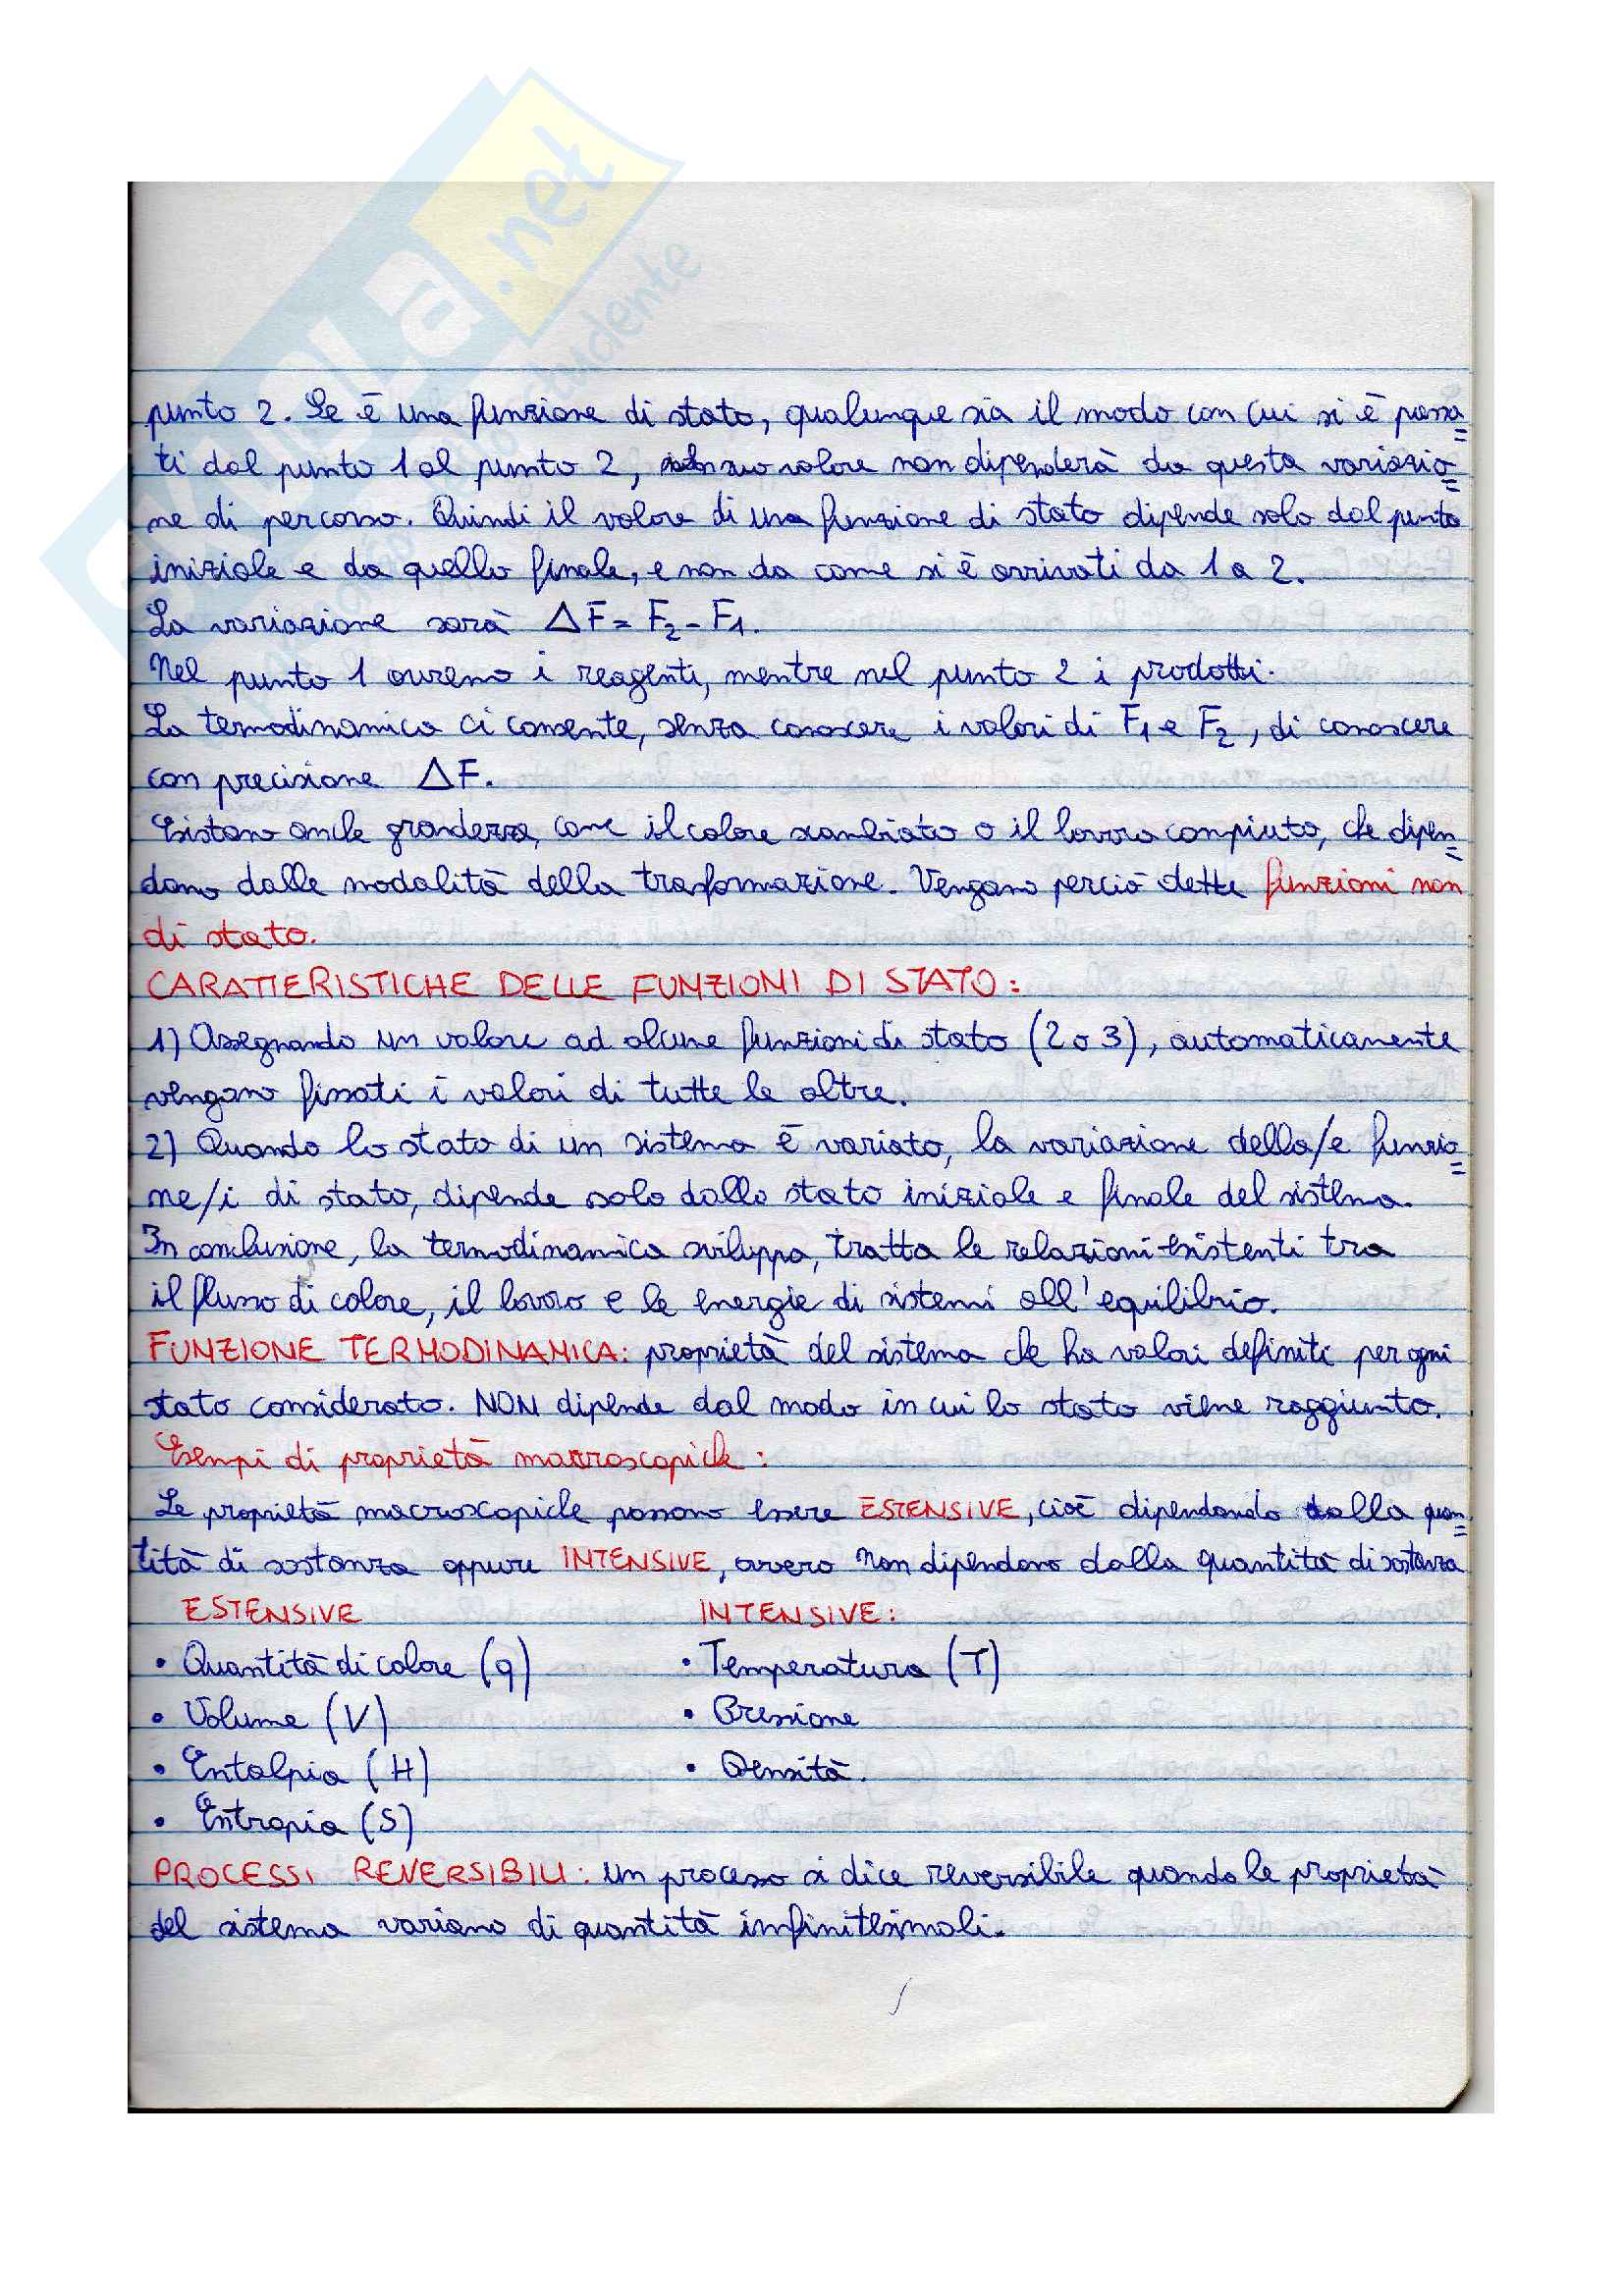 .net
punto 2. Se è una funzione di stato, qualunque sia il modo con cui si è passa=
ti dal punto 1 al punto 2, suo valore non dipenderà da questa variazio=
ne di percorso. Quindi il valore di una funzione di stato dipende solo dal punto
iniziale e da quello finale, e non da come si è arrivati da 1 a 2.
La variazione sarà ΔF = F₂ - F₁.
Nel punto 1 avremo i reagenti, mentre nel punto 2 i prodotti.
La termodinamica ci consente, senza conoscere i valori di F₁ e F₂, di conoscere
con precisione ΔF.
Esistono anche grandezze, come il calore scambiato o il lavoro compiuto, che dipen=
dono dalle modalità della trasformazione. Vengono perciò dette funzioni non
di stato.
CARATTERISTICHE DELLE FUNZIONI DI STATO:
1) Assegnando un valore ad alcune funzioni di stato (2 o 3), automaticamente
vengono fissati i valori di tutte le altre.
2) Quando lo stato di un sistema è variato, la variazione della/e funzio=
ne/i di stato, dipende solo dallo stato iniziale e finale del sistema.
In conclusione, la termodinamica sviluppa, tratta le relazioni esistenti tra
il flusso di calore, il lavoro e le energie di sistemi all'equilibrio.
FUNZIONE TERMODINAMICA: proprietà del sistema che ha valori definiti per ogni
stato considerato. NON dipende dal modo in cui lo stato viene raggiunto.
Esempi di proprietà macroscopiche:
Le proprietà macroscopiche possono essere ESTENSIVE, cioè dipendendo dalla quan=
tità di sostanza oppure INTENSIVE, ovvero non dipendono dalla quantità di sostanza
ESTENSIVE INTENSIVE:
• Quantità di calore (q) • Temperatura (T)
• Volume (V) • Pressione
• Entalpia (H) • Densità.
• Entropia (S)
PROCESSI REVERSIBILI: un processo si dice reversibile quando le proprietà
del sistema variano di quantità infinitesimali.